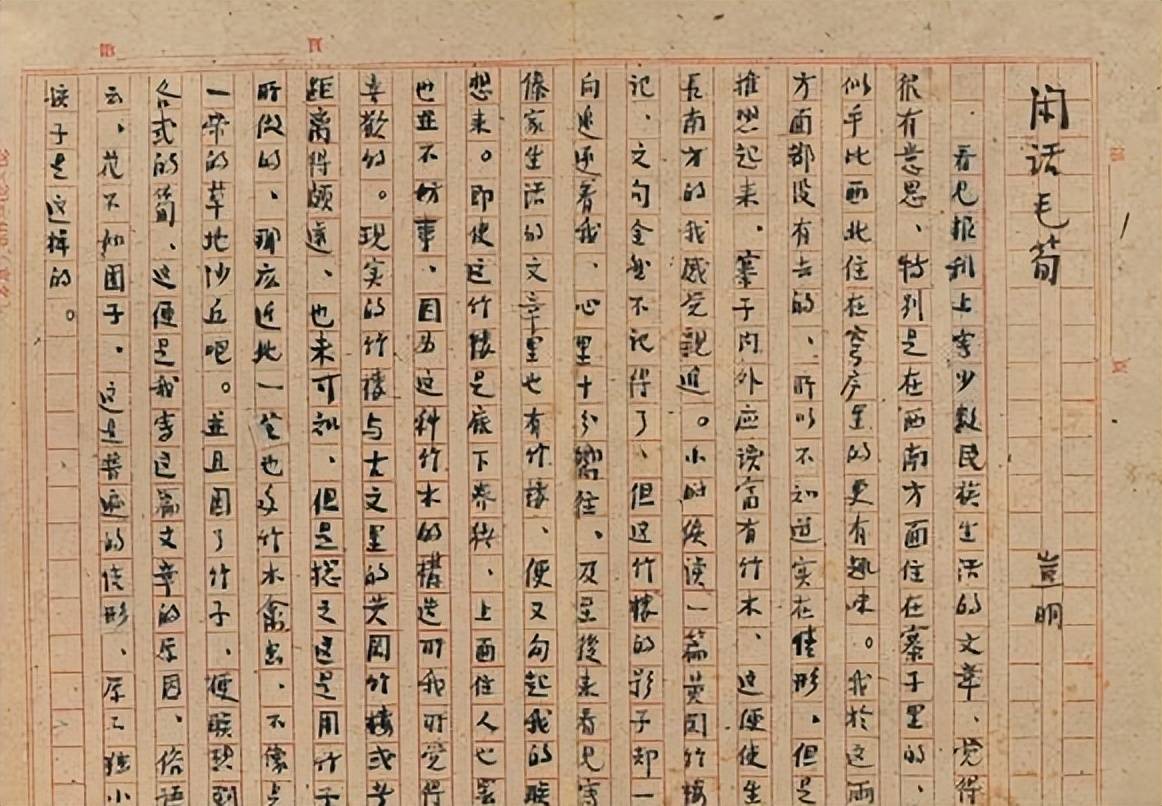 闲话毛筍
岂明
看见报刊上写少数民族生活的文章、觉得
很有意思、特别是在西南方面住在寨子里的、
似乎比西北住在穹庐里的更有趣味。我於这两
方面都没有去的、所以不知道实在情形、但是
推想起来、寨子内外应该富有竹木、这便使生
长南方的我感觉親近。小时候读一篇黄冈竹楼
记、文句全部不记得了、但这竹楼的影子却一
向追逐着我、心里十分嚮往、及至後来看见写
傣家生活的文章里也有竹楼、便又勾起我的联
想来。即使这竹楼是底下养猪、上面住人也罢
也並不妨事、因为这种竹木的構造所我所觉得
喜歡的。现实的竹楼与古文里的黄冈竹楼或者
距离得颇遠、也未可知、但是总之这是用竹子
所做的、那広近北一
一带的草地沙丘吧。並且因了竹子、便联想到
各式的筍、这便是我写这篇文章的原因、俗语
云、花不如团子、这是普遍的情形、原不独小
孩子是这样的。